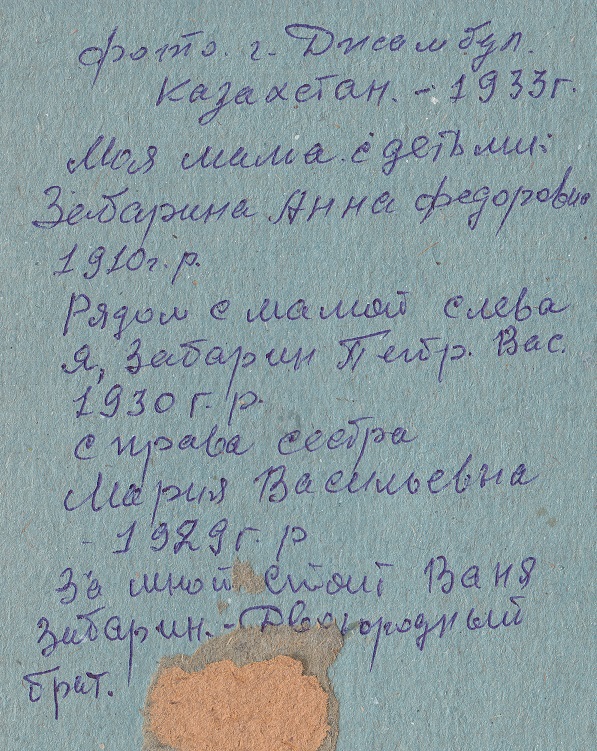 фото. г. Джамбул.
Казахстан. - 1933г.
Моя мама с детьми:
Забарина Анна Федоровна
1910г.р.
Рядом с мамой слева
я, Забарин Петр. Вас.
1930г.р.
справа сестра
Мария Васильевна
- 1929г.р
За мной стоит Ваня
Забарин. - Двоюродный
брат.